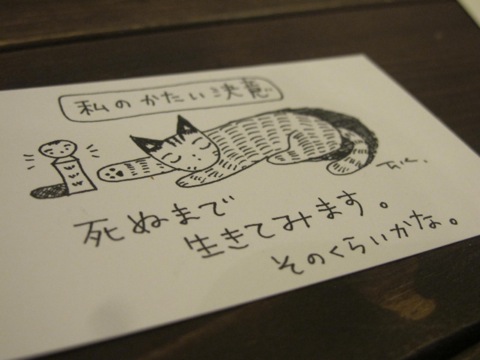 私のかたい決意
死ぬまで
生きてみます。
そのくらいかな。